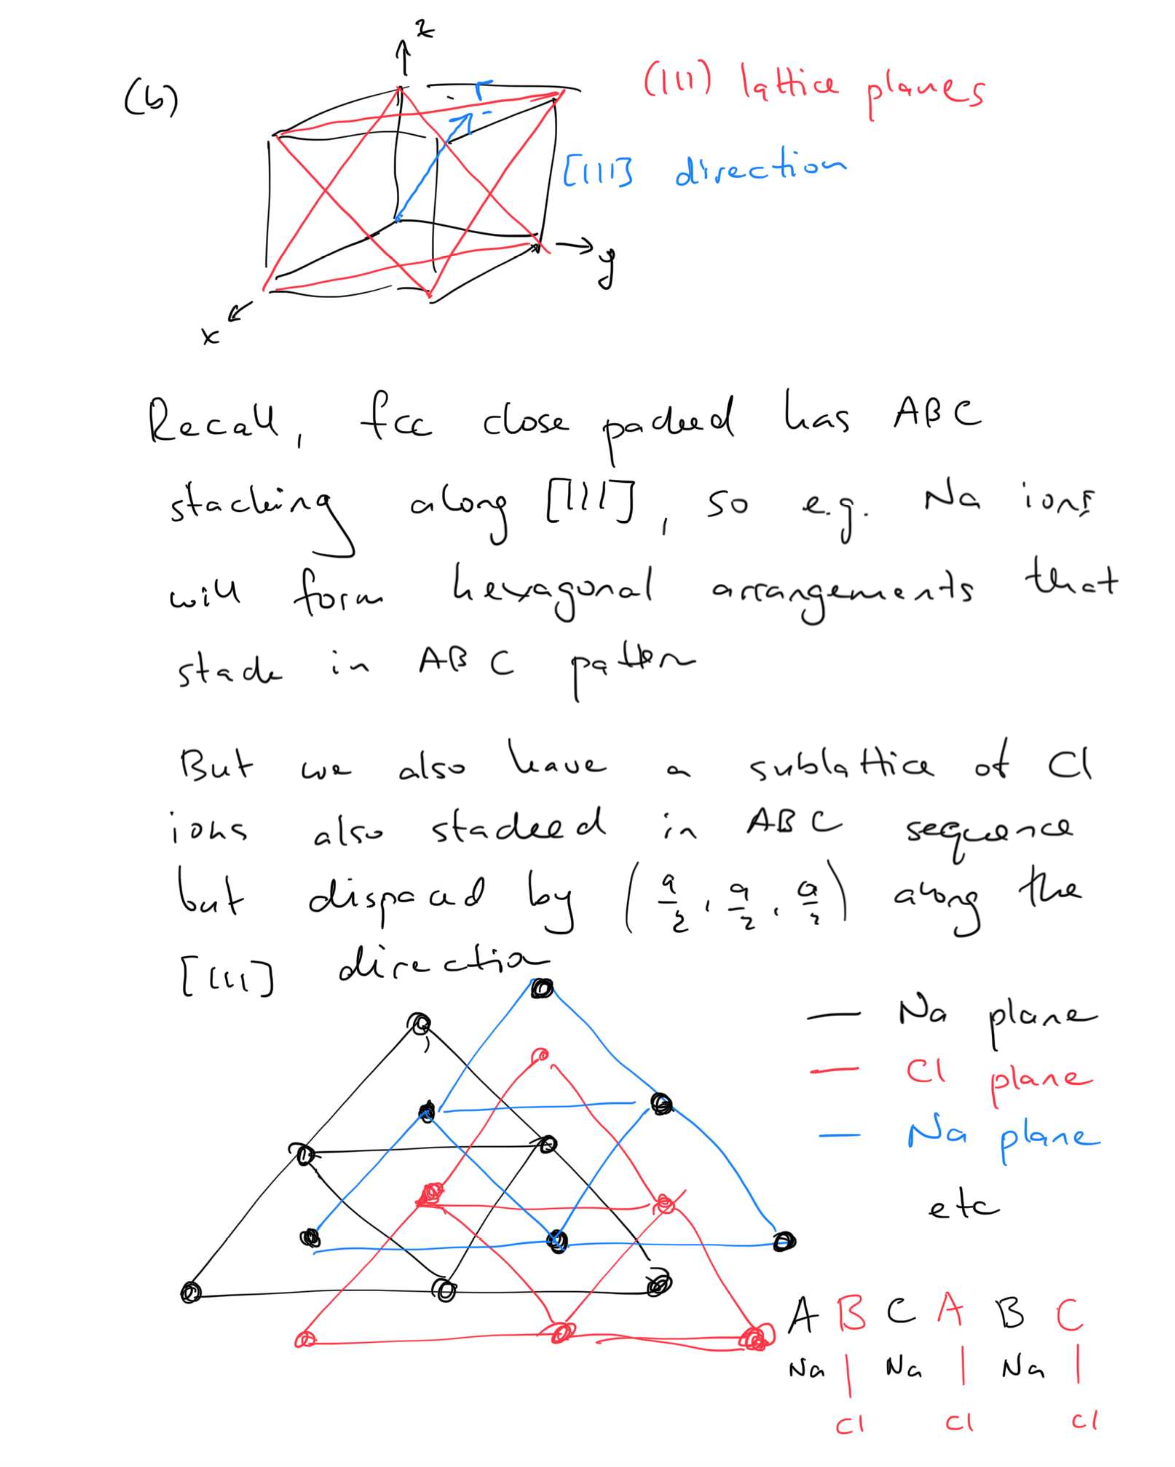 z
(b)
(111) lattice planes
[111] direction
y
x
Recall, fcc close packed has ABC
stacking along [111], so e.g. Na ions
will form hexagonal arrangements that
stack in ABC pattern
But we also have a sublattice of Cl
ions also stacked in ABC sequence
but dispaced by (a/2, a/2, a/2) along the
[111] direction
— Na plane
— Cl plane
— Na plane
etc
A B C A B C
Na | Na | Na |
Cl Cl Cl